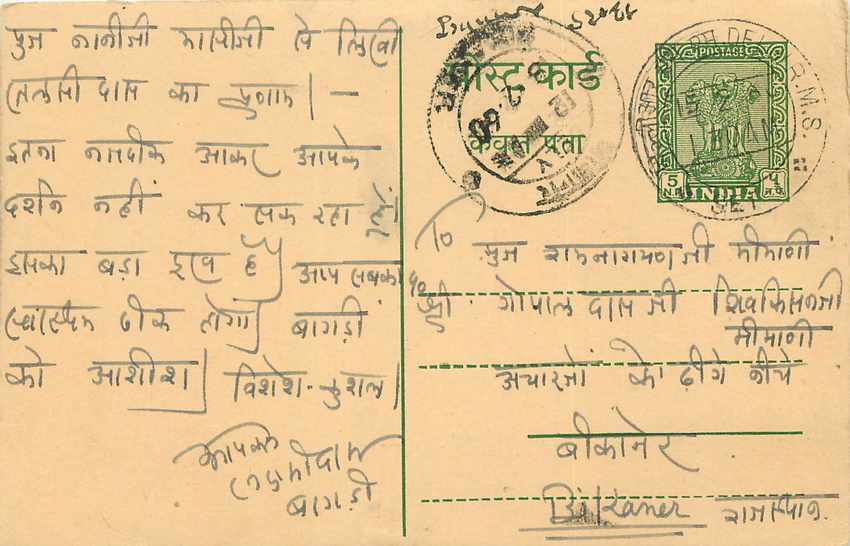 पुज नानीजी मासीजी से लिखी
तुलसी दास का प्रणाम । —
इतना नजदीक आकर आपके
दर्शन नहीं कर सक रहा हुं
इसका बड़ा दुख है आप सबका
स्वास्थ्य ठीक होगा बागड़ी
को आशीश विशेश कुशल ।
आपका
बागड़ी
पोस्ट कार्ड
केवल पता
POSTAGE
5 N.P.
INDIA
५ न.पै.
R.M.S.
SET
To
पुज रामनारायणजी मीमाणी
गोपाल दासजी शिवकिसनजी
मीमाणी
आचारजो के नीचे
बीकानेर
Bikaner राजस्थान